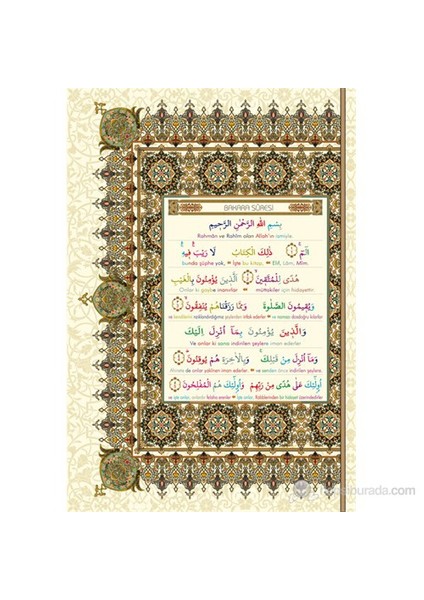 BAKARA SÛRESİ
بِسْمِ اللهِ الرَّحْمٰنِ الرَّحِيمِ
Rahmân ve Rahîm olan Allah'ın ismiyle.
الٓمٓ ﴿١﴾ ذٰلِكَ الْكِتَابُ لَا رَيْبَ فِيهِ
bunda şüphe yok, İşte bu kitap, Elif, Lâm, Mîm.
هُدًى لِلْمُتَّقِينَ ﴿٢﴾ اَلَّذِينَ يُؤْمِنُونَ بِالْغَيْبِ
Onlar ki gayba inanırlar müttakiler için hidayettir.
وَيُقِيمُونَ الصَّلٰوةَ وَمِمَّا رَزَقْنَاهُمْ يُنْفِقُونَ ﴿٣﴾
ve kendilerini rızıklandırdığımız ve namazı dosdoğru kılarlar
وَالَّذِينَ يُؤْمِنُونَ بِمَٓا اُنْزِلَ اِلَيْكَ
Ve onlar ki sana indirilen şeylere iman ederler
وَمَٓا اُنْزِلَ مِنْ قَبْلِكَ وَبِالْاٰخِرَةِ هُمْ يُوقِنُونَ ﴿٤﴾
Ahirete de onlar yakînen iman ederler. ve senden önce indirilen şeylere
اُولٰٓئِكَ عَلٰى هُدًى مِنْ رَبِّهِمْ وَاُولٰٓئِكَ هُمُ الْمُفْلِحُونَ ﴿٥﴾
ve işte onlar, onlardır felaha erenler İşte onlar, Rabblerinden bir hidayet üzerindedirler
burada.com